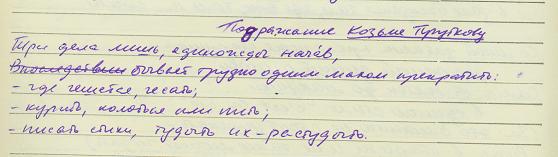 Подражание Козьме Пруткову
Три дела лишь, единожды начёв,
Впоследствии бывает трудно одним махом прекратить:
- где чешется, чесать;
- курить, колоться или пить;
- писать стихи, тудыть их - растудыть.